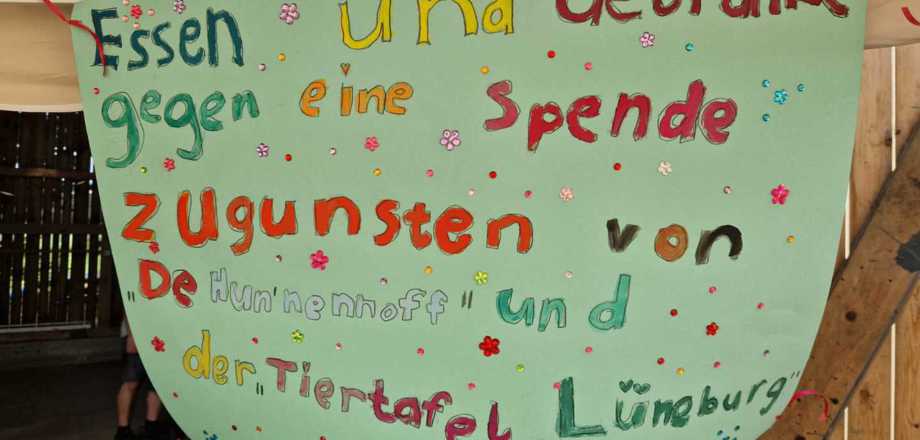 Essen und Getränke
gegen eine Spende
zugunsten von
„De Hun'nenhoff" und
der „Tiertafel Lüneburg"